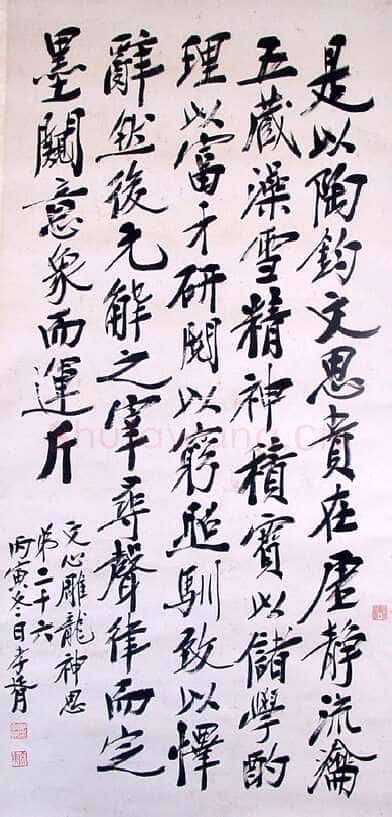 是以陶鈞文思貴在虛靜流瀹
五藏澡雪精神積寶以儲學酌
理以富才研閱以窮照馴致以懌
辭然後元解之宰尋聲律而定
墨闚意象而運斤
文心雕龍神思
第二十六
丙寅冬日